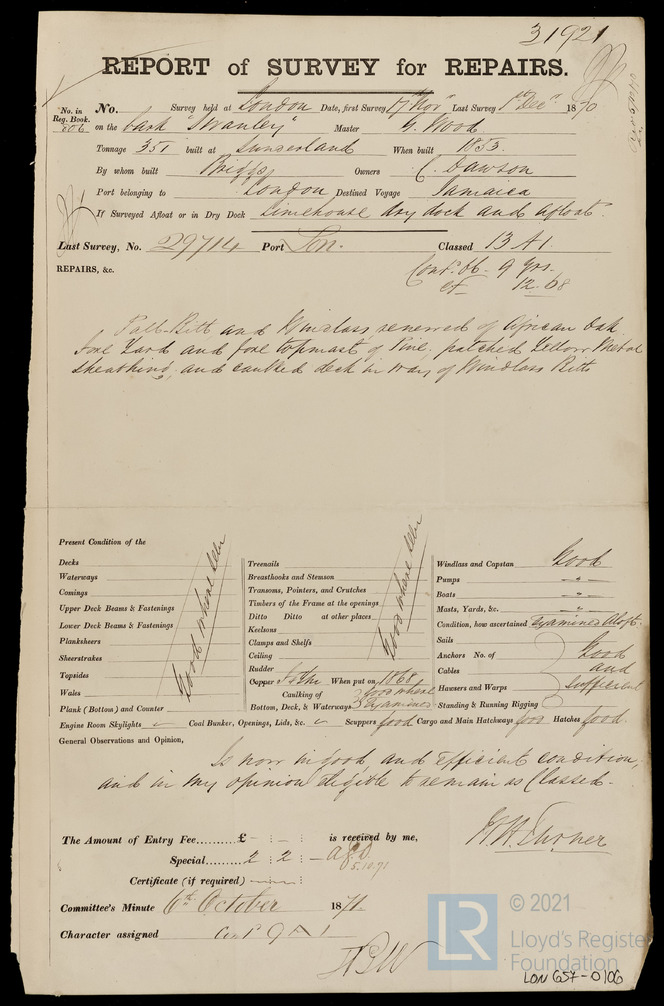 31921
REPORT of SURVEY for REPAIRS.
No. in Reg. Book. 806
No. Survey held at London Date, first Survey 17th Novr Last Survey 1st Decr 1870
on the bark "Swanley" Master G. Wood
Tonnage 351 built at Sunderland When built 1853
By whom built Briggs Owners C. Dawson
Port belonging to London Destined Voyage Jamaica
If Surveyed Afloat or in Dry Dock Limehouse dry dock and afloat
Last Survey, No. 29714 Port Lon. Classed 13 A1.
REPAIRS, &c. Contd 66 - 9 Yrs.
12-68
Pall-Bitt and Windlass renewed of African Oak
Fore Yard and fore topmast of Pine, patched Yellow Metal
Sheathing, and caulked deck in way of Windlass Bitts
Present Condition of the
Decks
Waterways
Comings
Upper Deck Beams & Fastenings
Lower Deck Beams & Fastenings
Planksheers
Sheerstrakes
Topsides
Wales
Plank (Bottom) and Counter
Good where seen
Treenails
Breasthooks and Stemson
Transoms, Pointers, and Crutches
Timbers of the Frame at the openings
Ditto Ditto at other places
Keelsons
Clamps and Shelfs
Ceiling
Rudder
Good where seen
Copper When put on 1868
Caulking of Bottom, Deck, & Waterways Good where examined
Windlass and Capstan Good
Pumps "
Boats "
Masts, Yards, &c. "
Condition, how ascertained Examined Aloft.
Sails
Anchors No. of
Cables
Hawsers and Warps
Standing & Running Rigging
Good and sufficient
Engine Room Skylights Coal Bunker, Openings, Lids, &c. Scuppers good Cargo and Main Hatchways good Hatches good.
General Observations and Opinion,
Is now in good and efficient condition,
and in my opinion eligible to remain as Classed.
The Amount of Entry Fee..........£ - : - : is received by me,
Special......... 2 : 2 : -
5.10.71
Certificate (if required)
Committee's Minute 6th October 1871
Character assigned Contd 9 A 1
© 2021
LR
Lloyd's Register
Foundation
LON 657-0106